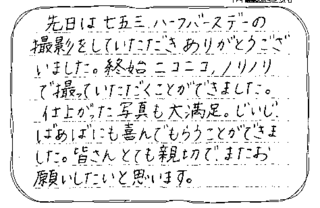 先日は七五三、ハーフバースデーの
撮影をしていただきありがとうござ
いました。終始ニコニコ、ノリノリ
で撮っていただくことができました。
仕上がった写真も大満足。じいじ、
ばあばにも喜んでもらうことができま
した。皆さんとても親切で、またお
願いしたいと思います。